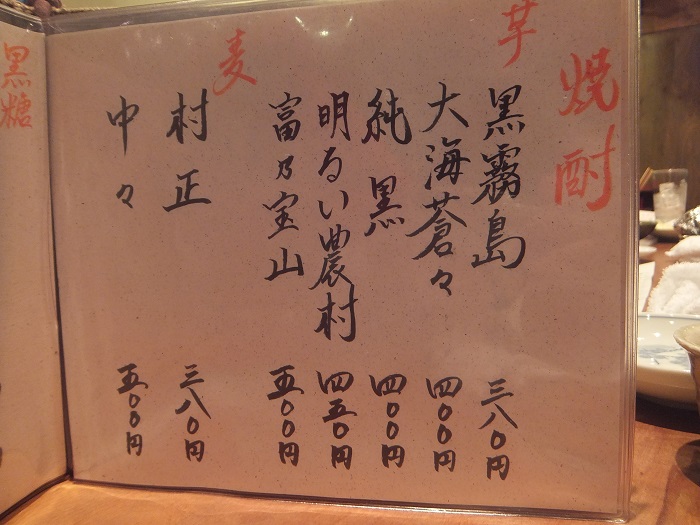 焼酎
芋
黒霧島 三八〇円
大海蒼々 四〇〇円
純黒 四〇〇円
明るい農村 四五〇円
富乃宝山 五〇〇円
麦
村正 三八〇円
中々 五〇〇円
黒糖